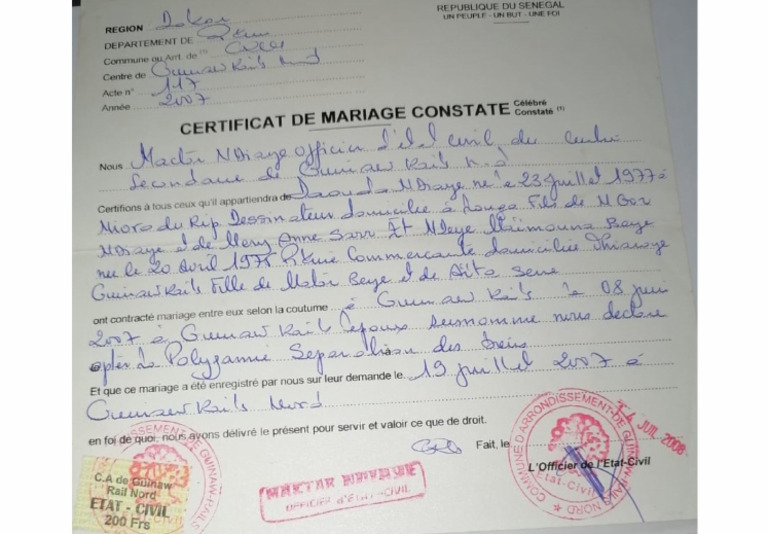 REGION Dakar
REPUBLIQUE DU SENEGAL
UN PEUPLE - UN BUT - UNE FOI
DEPARTEMENT DE Pikine
Commune ou Arrt. de (1)
Centre de Guinaw Rails Nord
Acte n° 117
Année 2007
CERTIFICAT DE MARIAGE CONSTATE Célébré Constaté (1)
Nous Mactar NDiaye officier d'etat civil du centre
Secondaire de Guinaw Rails Nd
Certifions à tous ceux qu'il appartiendra de Daouda NDiaye né le 23 juillet 1977 à
Nioro du Rip Dessinateur domicilié à Louga Fils de M Bor
NDiaye et de Mery Anne Sarr Et Ndeye Maïmouna Beye
née le 20 Avril 1975 Pikine Commerçante domiciliée Thiaroye
Guinaw Rails Fille de Beye et de Sene
ont contracté mariage entre eux selon la coutume à Guinaw Rails le 08 juin
2007 à Guinaw Rails l'époux susnommé nous déclare
opter la Polygamie Séparation des biens
Et que ce mariage a été enregistré par nous sur leur demande le 19 juillet 2007 à
Guinaw Rails Nord
en foi de quoi, nous avons délivré le présent pour servir et valoir ce que de droit.
Fait, le 14 JUIL 2008
L'Officier de l'Etat-Civil
COMMUNE D'ARRONDISSEMENT DE GUINAW-RAILS NORD
Etat-Civil
MACTAR NDIAYE
OFFICIER D'ETAT-CIVIL
C.A de Guinaw
Rail Nord
ETAT - CIVIL
200 Frs